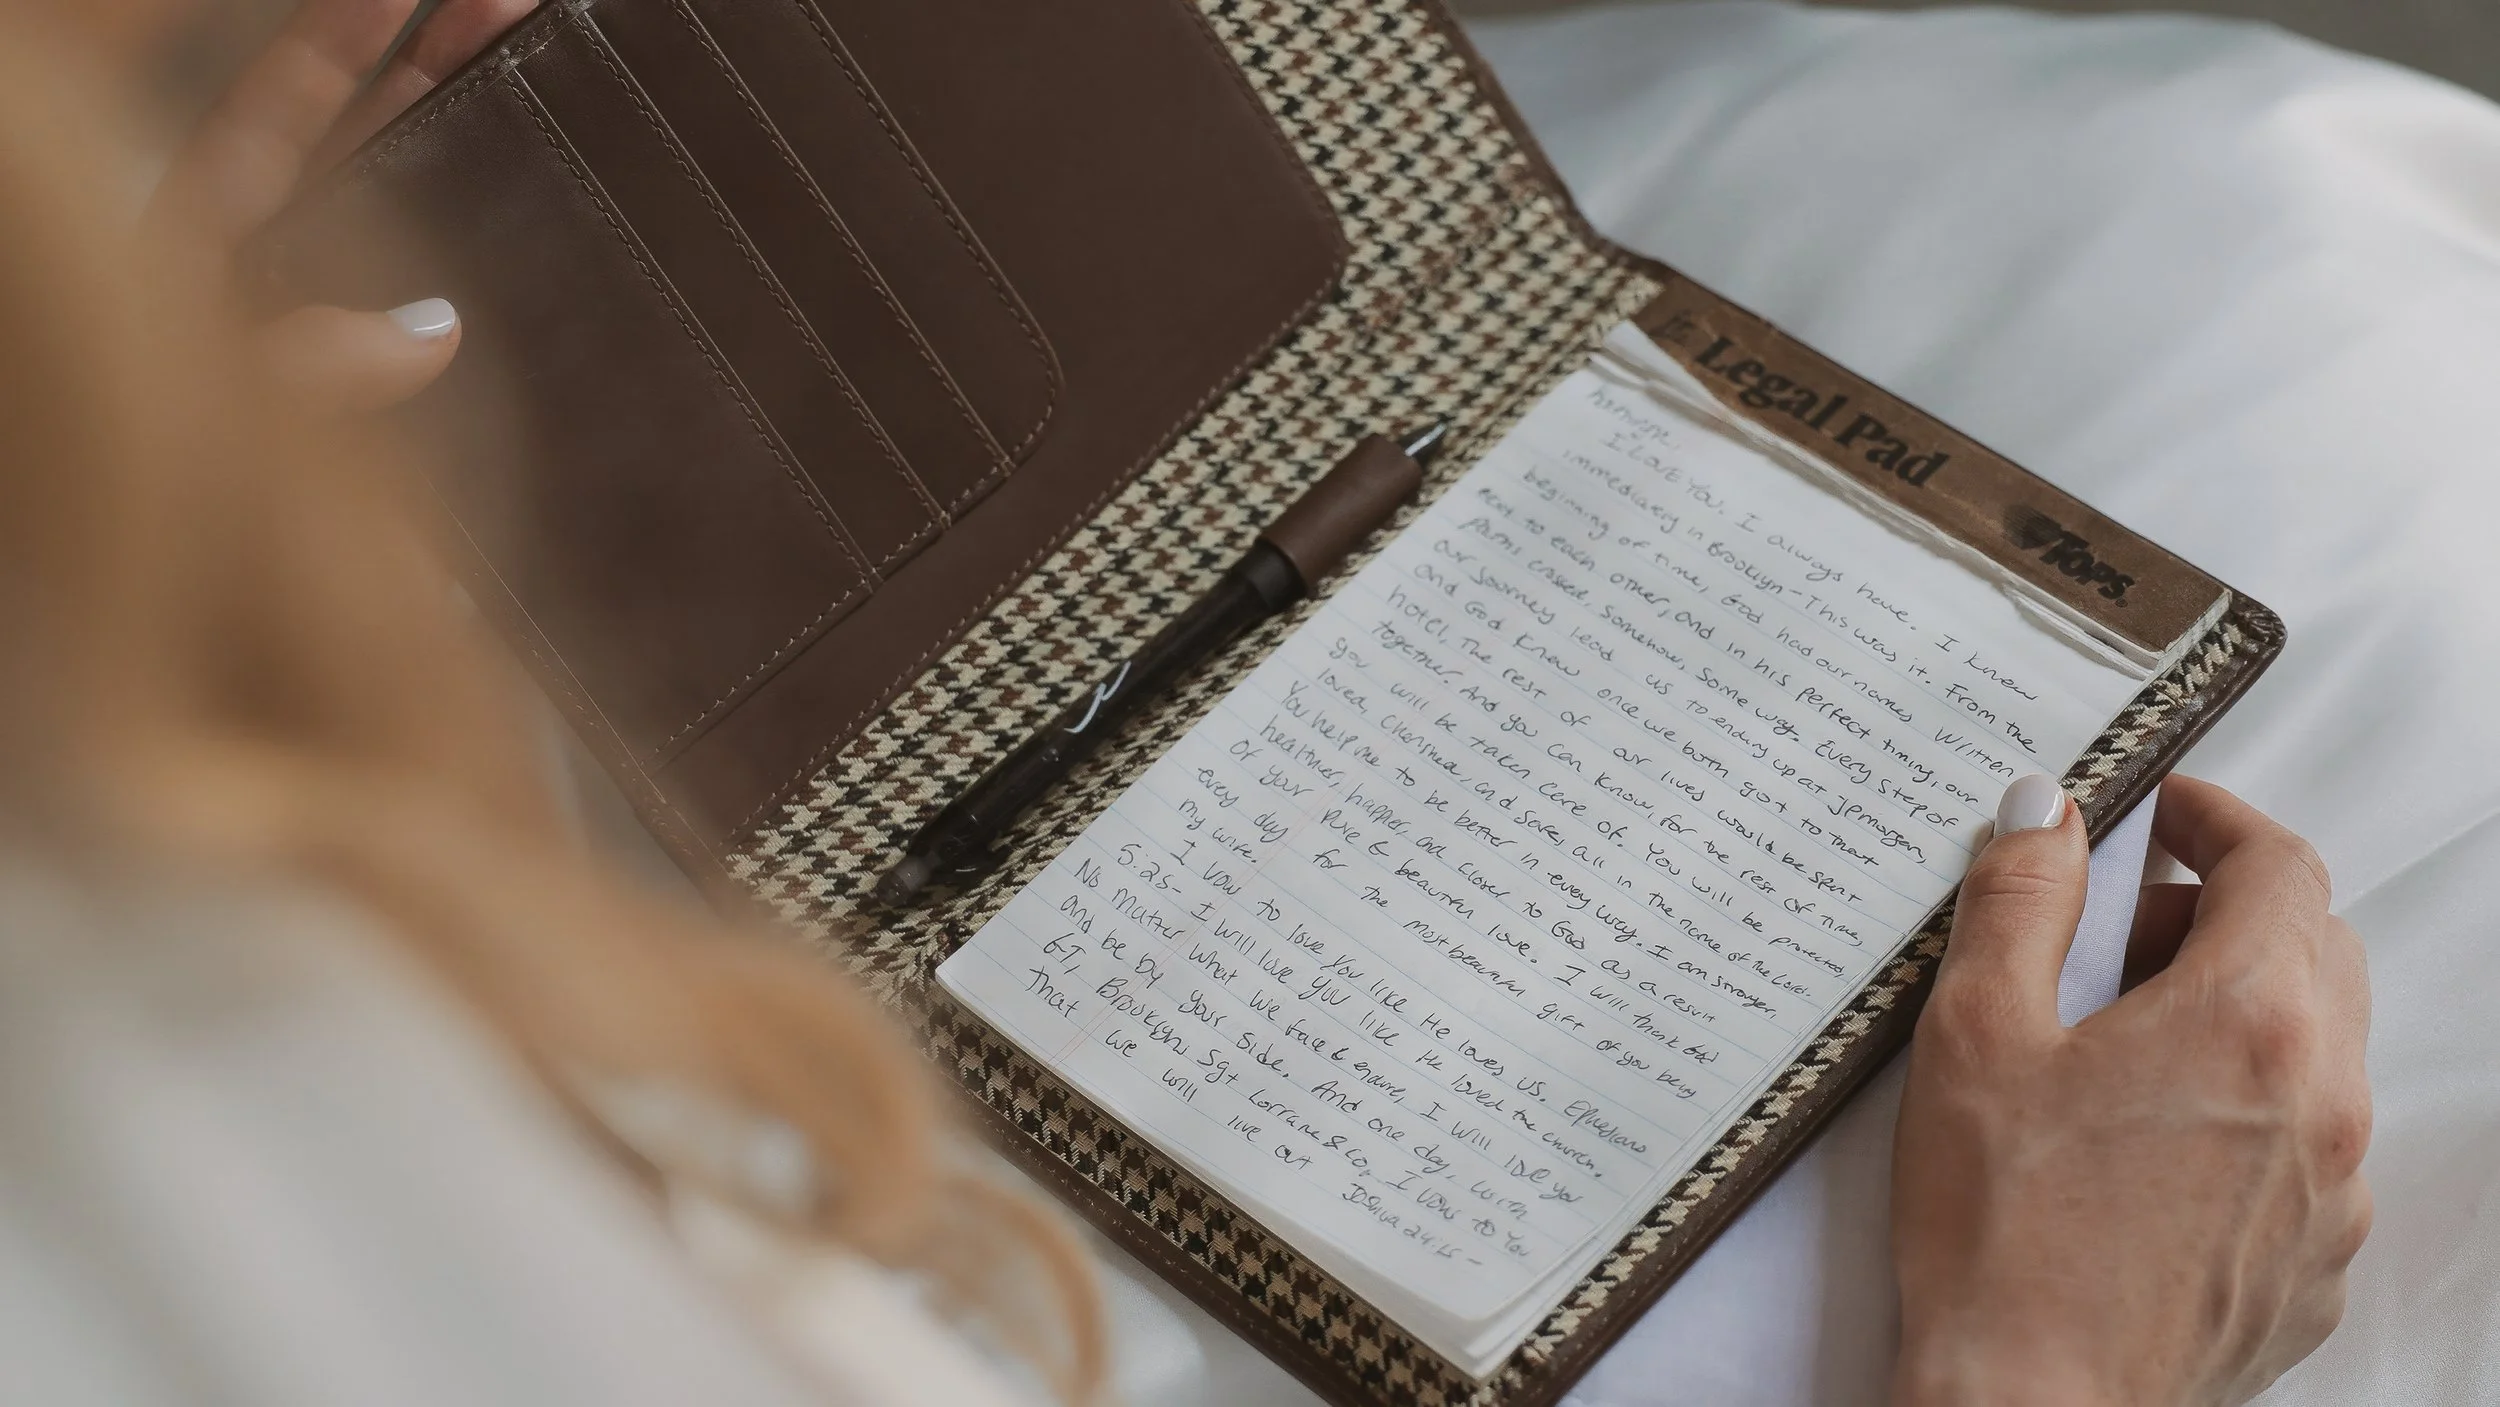 Legal Pad
TOPS
I LOVE YOU. I always have. I knew
immediately in Brooklyn - This was it. From the
beginning of time, God had our names written
next to each other, and in his perfect timing, our
Paths crossed, somehow, some way. Every step of
our journey lead us to ending up at JPMorgan,
and God knew once we both got to that
hotel, The rest of our lives would be spent
together. And you can know, for the rest of time,
you will be taken care of. You will be protected,
loved, cherished, and safe, all in the name of the Lord.
You help me to be better in every way. I am stronger,
healthier, happier, and closer to God as a result
of your pure & beautiful love. I will thank God
every day for the most beautiful gift of you being
my wife.
I vow to love you like He loves us. Ephesians
5:25- I will love you like He loved the church.
No matter what we face & endure, I will love you
and be by your side. And one day, with
GT, Brooklyn, Sgt Lorraine & Co, I vow to you
That we will live out Joshua 24:15 -